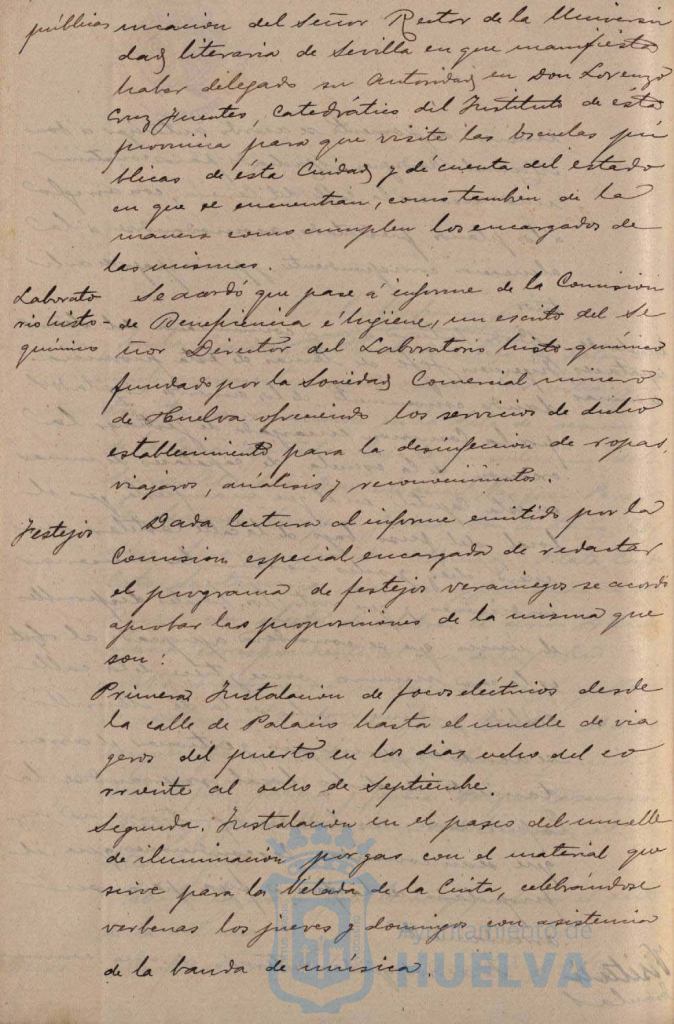 públicas nicacion del Señor Rector de la Universi
dad literaria de Sevilla en que manifiesta
haber delegado su Autoridad en Don Lorenzo
Cruz Fuentes, Catedrático del Instituto de ésta
provincia para que visite las Escuelas pú
blicas de ésta Ciudad y dé cuenta del estado
en que se encuentran, como también de la
manera como cumplen los encargados de
las mismas.
Laborato
rio histo-
químico
Se acordó que pase á informe de la Comision
de Beneficencia é higiene, un escrito del Se
ñor Director del Laboratorio histo-químico
fundado por la Sociedad Comercial minero
de Huelva ofreciendo los servicios de dicho
establecimiento para la desinfeccion de ropas,
viajeros, análisis y reconocimientos.
Festejos
Dada lectura al informe emitido por la
Comision especial encargada de redactar
el programa de festejos veraniegos se acordó
aprobar las proposiciones de la misma que
son:
Primera Instalacion de focos eléctricos desde
la calle de Palacio hasta el muelle de via
geros del puerto en los dias ocho del co
rriente al ocho de Septiembre.
Segunda. Instalacion en el paseo del muelle
de iluminacion por gas con el material que
sirve para la Velada de la Cinta, celebrándose
verbenas los jueves y domingos con asistencia
de la banda de música.
Ayuntamiento de
HUELVA